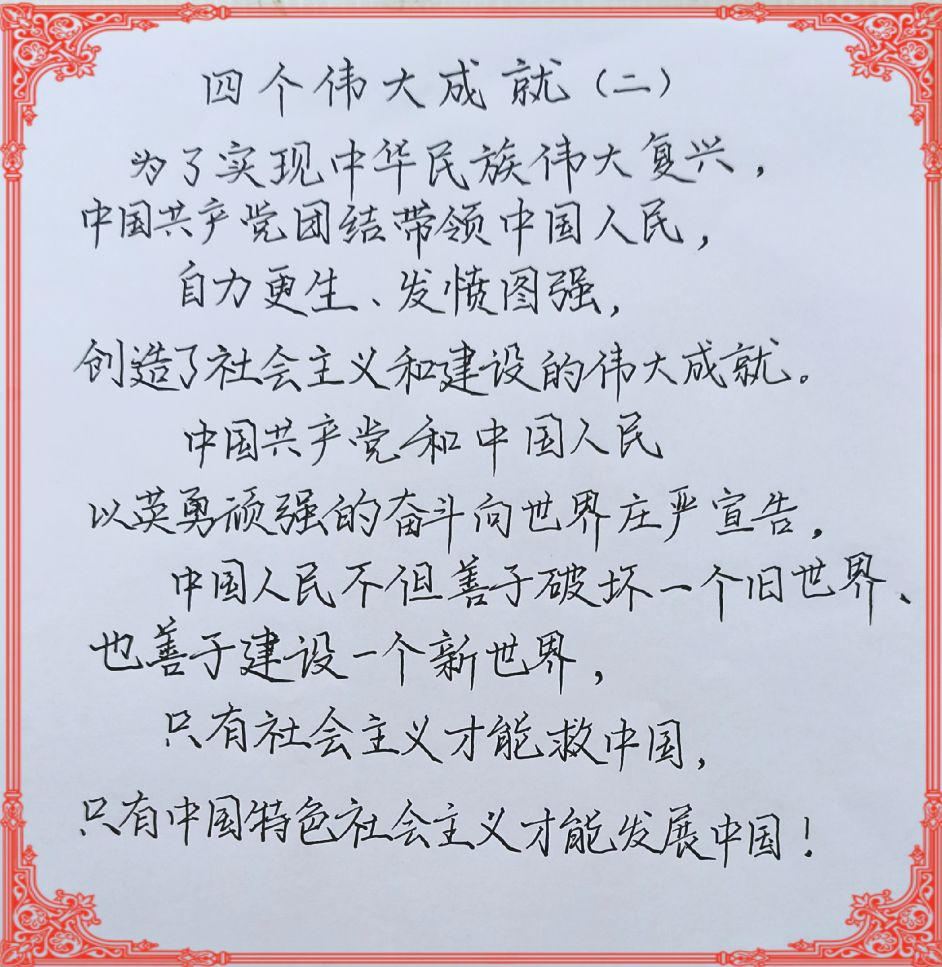 四个伟大成就（二）
为了实现中华民族伟大复兴，
中国共产党团结带领中国人民，
自力更生、发愤图强，
创造了社会主义和建设的伟大成就。
中国共产党和中国人民
以英勇顽强的奋斗向世界庄严宣告，
中国人民不但善于破坏一个旧世界、
也善于建设一个新世界，
只有社会主义才能救中国，
只有中国特色社会主义才能发展中国！